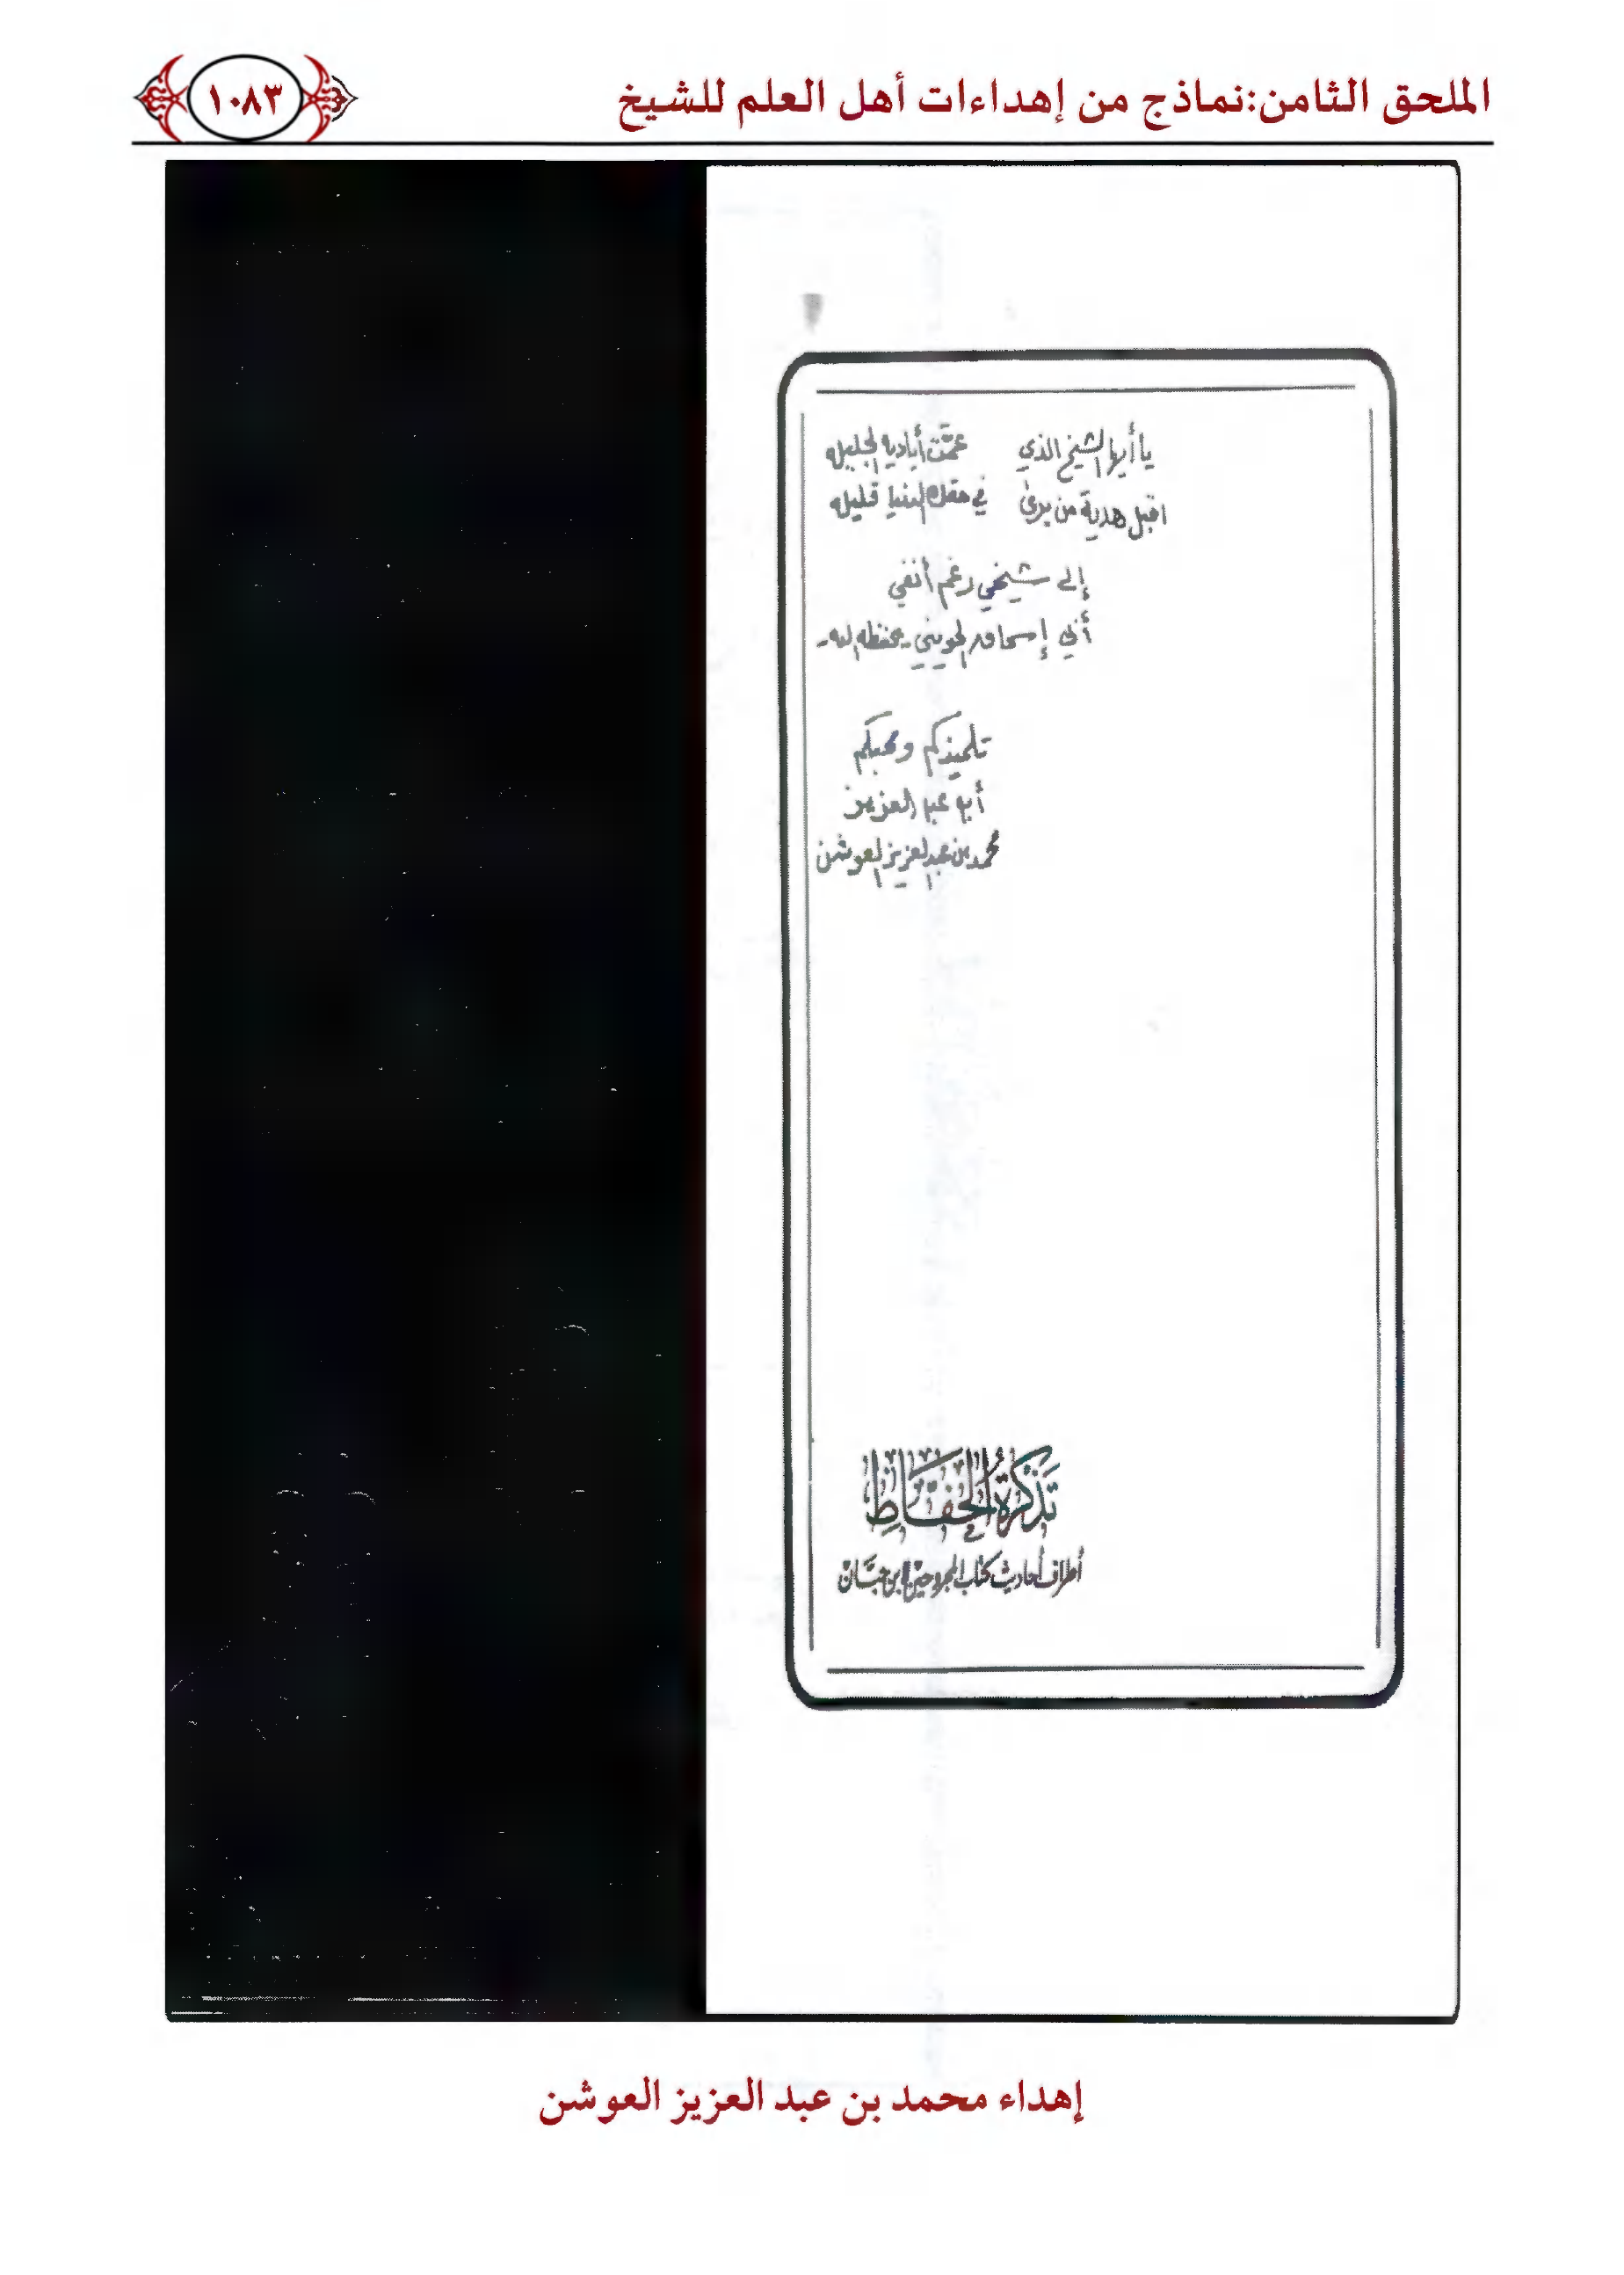 الملحق الثامن:نماذج من إهداءات أهل العلم للشيخ
١٠٨٣
يا أيها الشيخ الذي عمّت أياديه الجليله
اقبل هدية من يرى في حقك الدنيا قليله
إلى شيخي رغم أنفي
أبي إسحاق الحويني - حفظه الله -
تلميذكم ومحبكم
أبو عبد العزيز
محمد بن عبد العزيز العوشن
تَذْكِرَةُ الْحُفَّاظِ
أطراف أحاديث كتاب المجروحين لابن حبَّان
إهداء محمد بن عبد العزيز العوشن